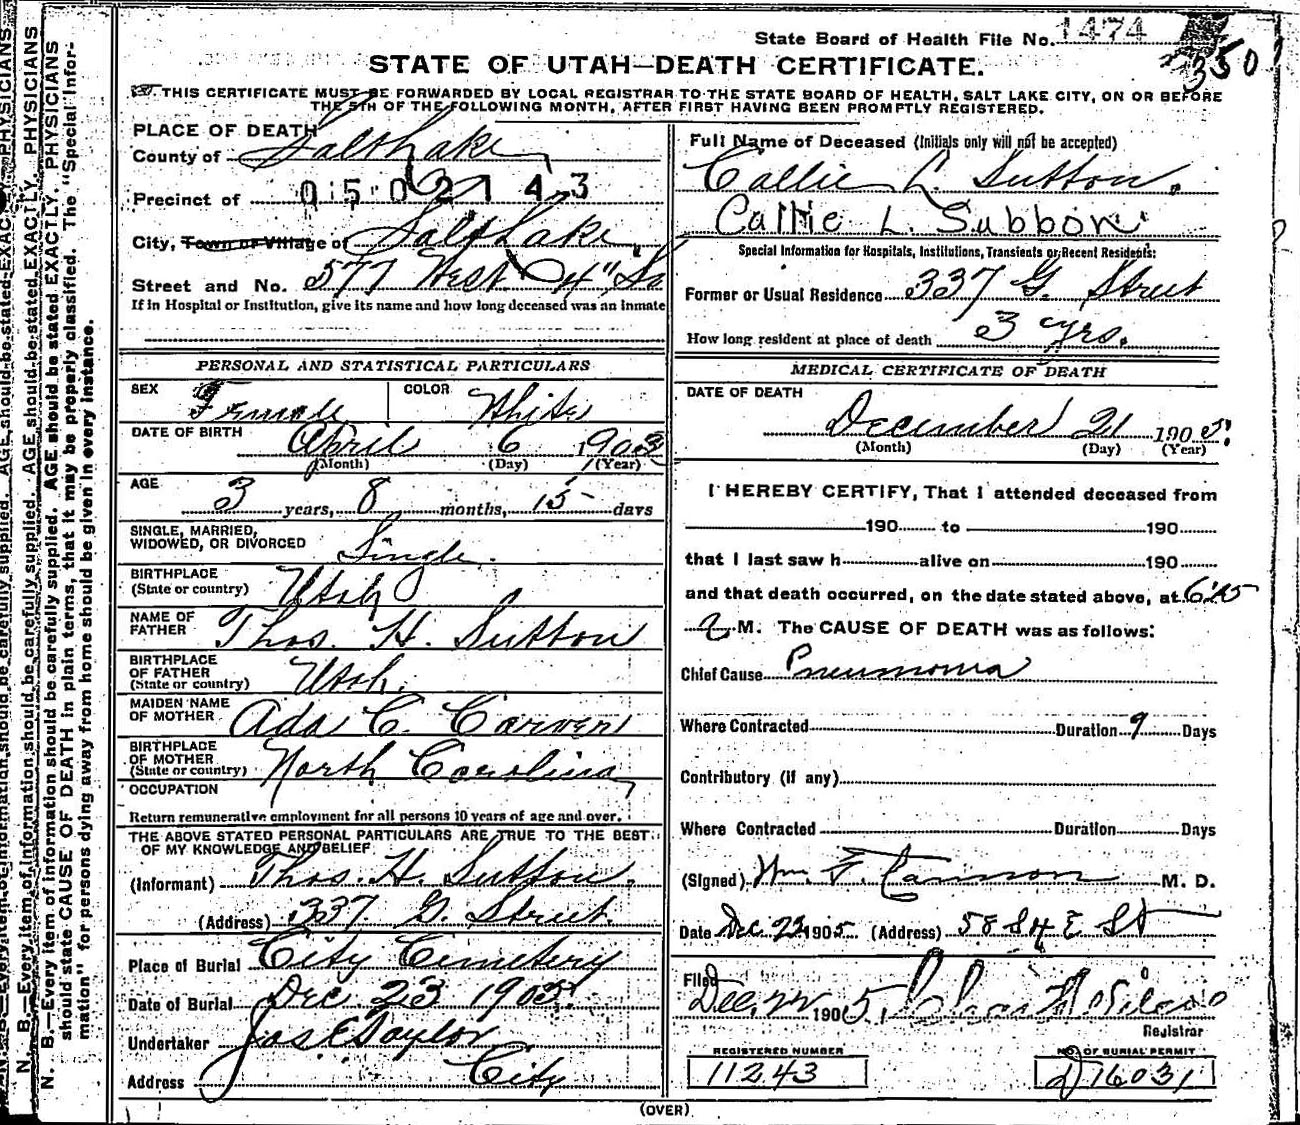 State Board of Health File No. 1474
350
STATE OF UTAH—DEATH CERTIFICATE.
THIS CERTIFICATE MUST BE FORWARDED BY LOCAL REGISTRAR TO THE STATE BOARD OF HEALTH, SALT LAKE CITY, ON OR BEFORE
THE 5TH OF THE FOLLOWING MONTH, AFTER FIRST HAVING BEEN PROMPTLY REGISTERED.
PLACE OF DEATH
County of Salt Lake
Precinct of 0502143
City, Town or Village of Salt Lake
Street and No. 577 West 4" So
If in Hospital or Institution, give its name and how long deceased was an inmate
PERSONAL AND STATISTICAL PARTICULARS
SEX Female COLOR White
DATE OF BIRTH April 6 1902
(Month) (Day) (Year)
AGE 3 years, 8 months, 15 days
SINGLE, MARRIED,
WIDOWED, OR DIVORCED Single.
BIRTHPLACE
(State or country) Utah
NAME OF
FATHER Thos. H. Sutton
BIRTHPLACE
OF FATHER
(State or country) Utah.
MAIDEN NAME
OF MOTHER Ada C. Carver
BIRTHPLACE
OF MOTHER
(State or country) North Carolina
OCCUPATION
Return remunerative employment for all persons 10 years of age and over.
THE ABOVE STATED PERSONAL PARTICULARS ARE TRUE TO THE BEST
OF MY KNOWLEDGE AND BELIEF
(Informant) Thos. H. Sutton.
(Address) 337 G. Street.
Place of Burial City Cemetery
Date of Burial Dec 23 1905.
Undertaker Jos E Taylor
Address City
Full Name of Deceased (Initials only will not be accepted)
Callie L. Sutton.
Callie L. Subbon
Special Information for Hospitals, Institutions, Transients or Recent Residents:
Former or Usual Residence 337 G. Street
How long resident at place of death 3 yrs.
MEDICAL CERTIFICATE OF DEATH
DATE OF DEATH
December 21 1905.
(Month) (Day) (Year)
I HEREBY CERTIFY, That I attended deceased from
190 to 190
that I last saw h alive on 190
and that death occurred, on the date stated above, at
M. The CAUSE OF DEATH was as follows:
Chief Cause Pneumonia
Where Contracted Duration 9 Days
Contributory (if any)
Where Contracted Duration Days
(Signed) Wm. F. Cannon M. D.
Date Dec 22 1905 (Address) 58 S 4 E St
Filed Dec. 22 1905.
Registrar
REGISTERED NUMBER
11243
NO. OF BURIAL PERMIT
D 16031
(OVER)
N. B.—Every item of information should be carefully supplied. AGE should be stated EXACTLY. PHYSICIANS
should state CAUSE OF DEATH in plain terms, that it may be properly classified. The "Special Infor-
mation" for persons dying away from home should be given in every instance.
N. B.—Every item of information should be carefully supplied. AGE should be stated EXACTLY. PHYSICIANS